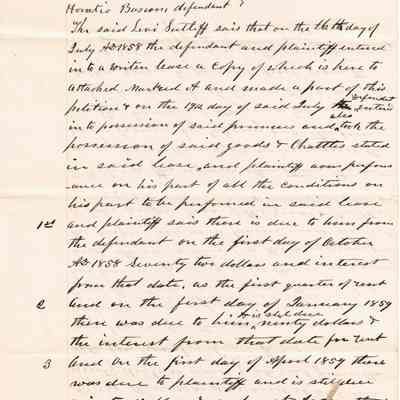 Horatio defendant
The said Levi Sutliff sais that on the 16th day of
July AD 1858 the defendant and plaintiff entered
in to a writen lease a copy of which is here to
attached Marked A and made a part of this
petition & on the 19th day of said July the defendant
in to possession of said premises and also took the
possession of said goods & Chattles stated
in said lease, and plaintiff avers perform
ance on his part of all the conditions on
his part to be performed in said lease
1st and plaintiff sais there is due to him from
the defendant on the first day of October
AD 1858 Seventy two dollars and interest
from that date, as the first quarter of rent
2 And on the first day of January 1859
there was due to him, & is still due ninety dollars &
the interest from that date for rent
3 And on the first day of April 1859 there
was due to plaintiff and is still due